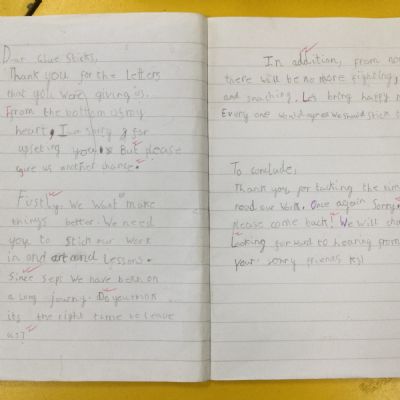 Dear Glue Sticks,
Thank you for the Letters
that you were giving us.
From the bottom of my
heart, I am sorry for
upseting you. But please
give us another chance.
Fistly, We want make
things better. We need
you to stick our work
in and around Lessons.
Since Sept We have been on
a long journy. Do you think
its the right time to leave
us?
In addition, from no
there will be no more fighting,
and snaching. Lets bring happy m
Every one would agree We should stick t
To conclude,
Thank you, for tacking the time
read our Work. Once again Sorry.
please come back! We will cha
Looking forward to hearing from
your sorry friends